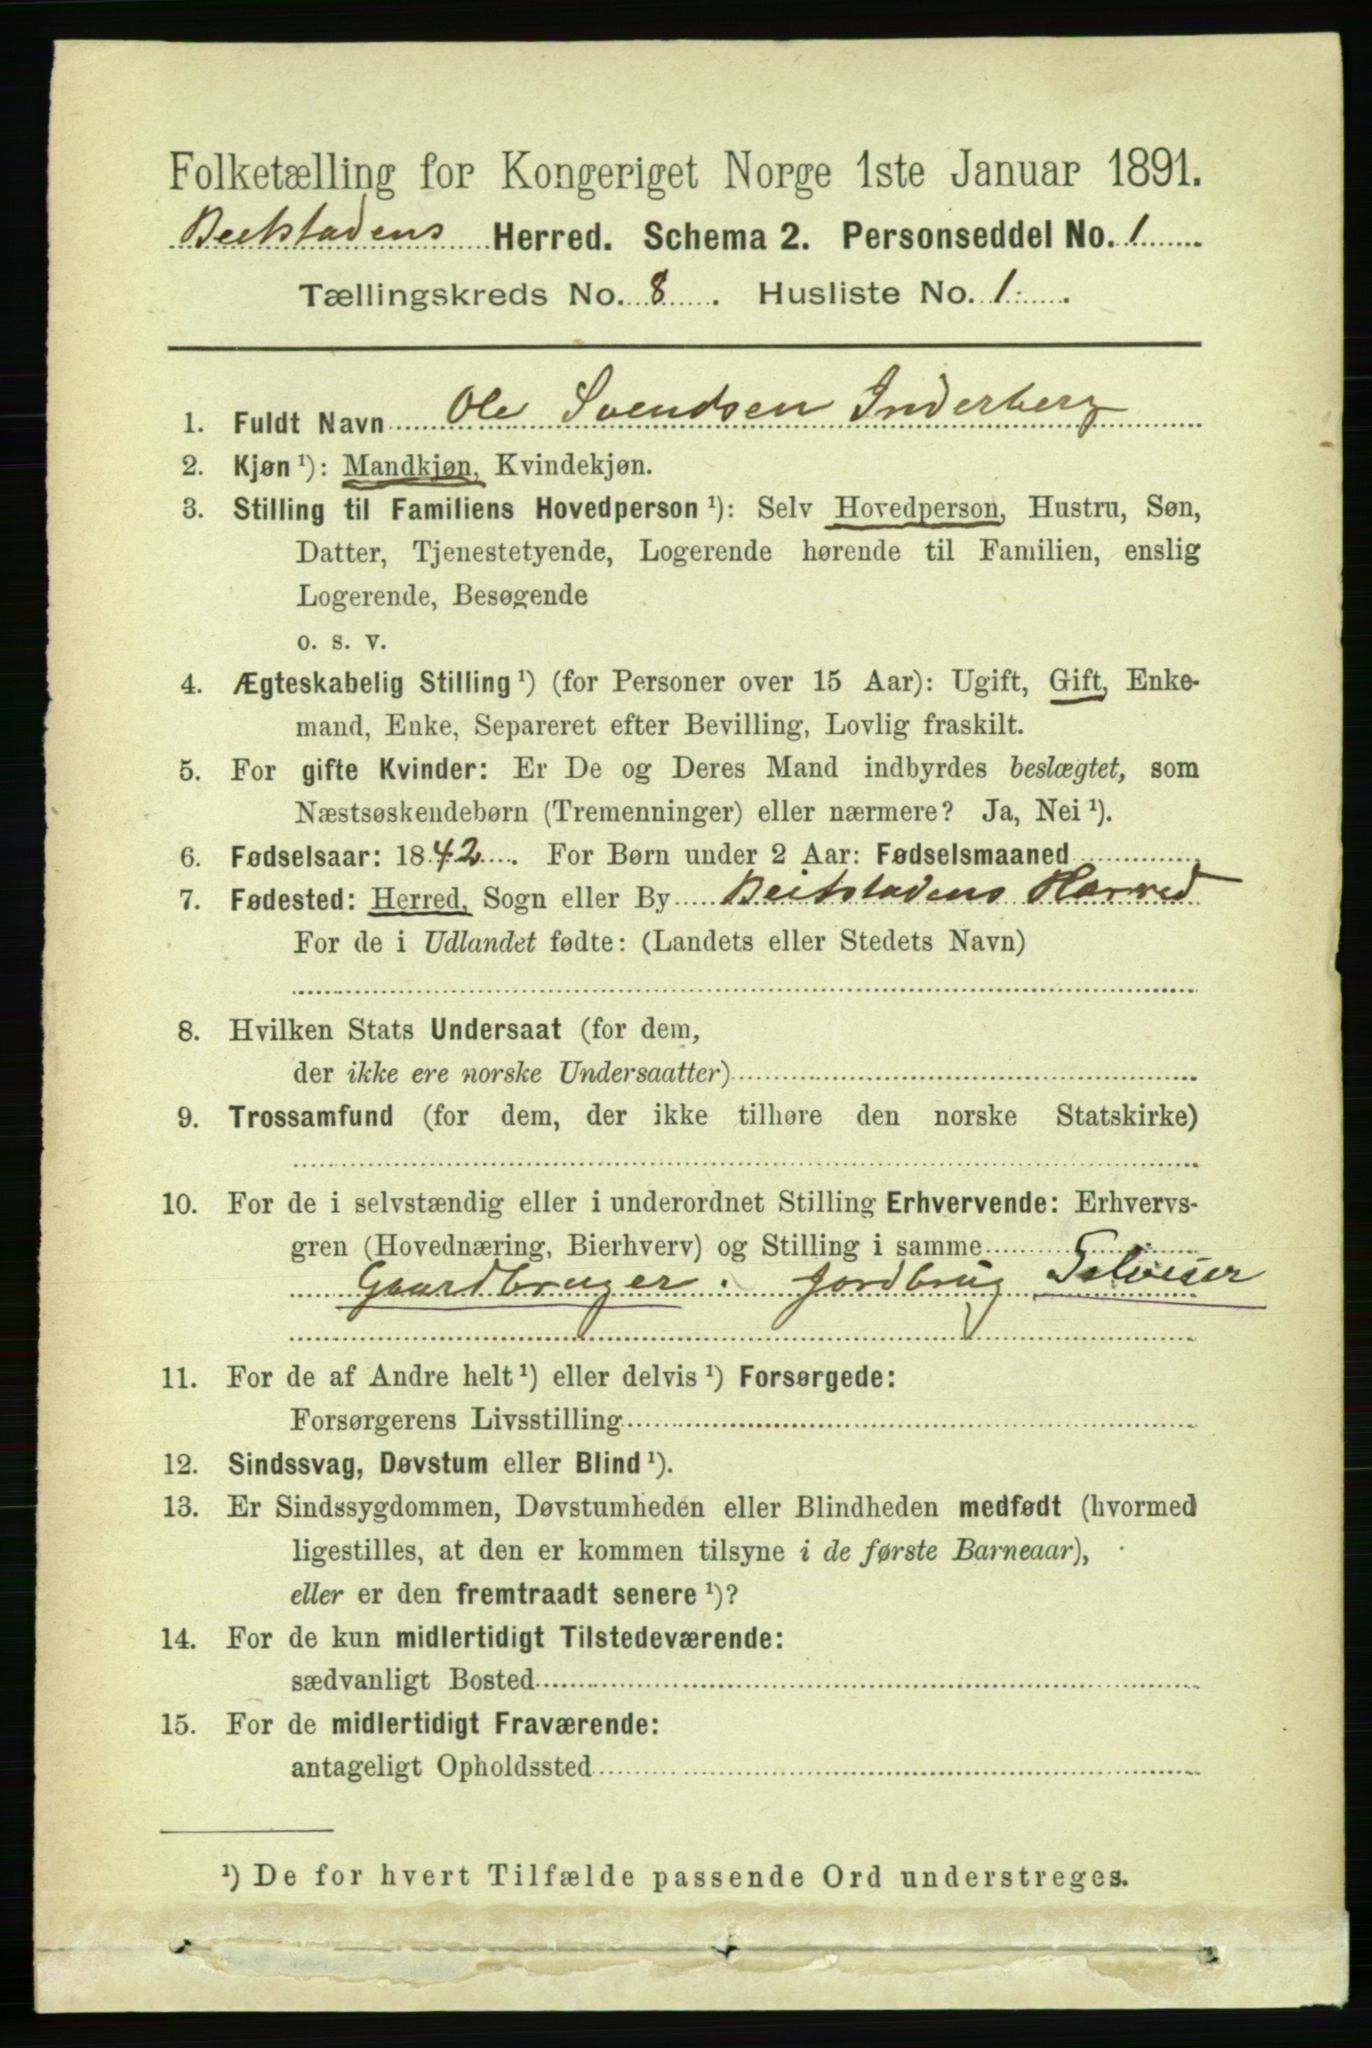 Folketælling for Kongeriget Norge 1ste Januar 1891.
Beitstadens Herred. Schema 2. Personseddel No. 1
Tællingskreds No. 8. Husliste No. 1.
1. Fuldt Navn Ole Svendsen Inderberg
2. Kjøn ¹): Mandkjøn, Kvindekjøn.
3. Stilling til Familiens Hovedperson ¹): Selv Hovedperson, Hustru, Søn,
Datter, Tjenestetyende, Logerende hørende til Familien, enslig
Logerende, Besøgende
o. s. v.
4. Ægteskabelig Stilling ¹) (for Personer over 15 Aar): Ugift, Gift, Enke-
mand, Enke, Separeret efter Bevilling, Lovlig fraskilt.
5. For gifte Kvinder: Er De og Deres Mand indbyrdes beslægtet, som
Næstsøskendebørn (Tremenninger) eller nærmere? Ja, Nei ¹).
6. Fødselsaar: 1842. For Børn under 2 Aar: Fødselsmaaned
7. Fødested: Herred, Sogn eller By Beitstadens Herred
For de i Udlandet fødte: (Landets eller Stedets Navn)
8. Hvilken Stats Undersaat (for dem,
der ikke ere norske Undersaatter)
9. Trossamfund (for dem, der ikke tilhøre den norske Statskirke)
10. For de i selvstændig eller i underordnet Stilling Erhvervende: Erhvervs-
gren (Hovednæring, Bierhverv) og Stilling i samme
Gaardbruger. Jordbrug Selveier
11. For de af Andre helt ¹) eller delvis ¹) Forsørgede:
Forsørgerens Livsstilling
12. Sindssvag, Døvstum eller Blind ¹).
13. Er Sindssygdommen, Døvstumheden eller Blindheden medfødt (hvormed
ligestilles, at den er kommen tilsyne i de første Barneaar),
eller er den fremtraadt senere ¹)?
14. For de kun midlertidigt Tilstedeværende:
sædvanligt Bosted
15. For de midlertidigt Fraværende:
antageligt Opholdssted
¹) De for hvert Tilfælde passende Ord understreges.